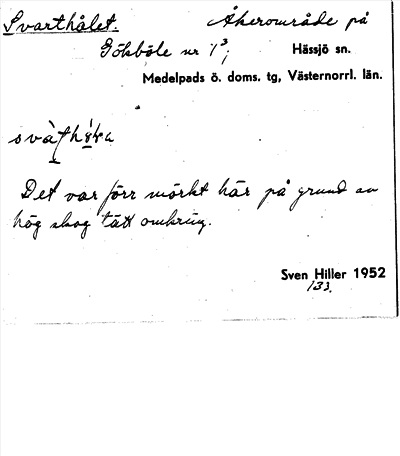 Svarthålet. Åkerområde på
Gökböle nr 1³; Hässjö sn.
Medelpads ö. doms. tg, Västernorrl. län.
Det var förr mörkt här på grund av
hög skog tätt omkring.
Sven Hiller 1952
133.